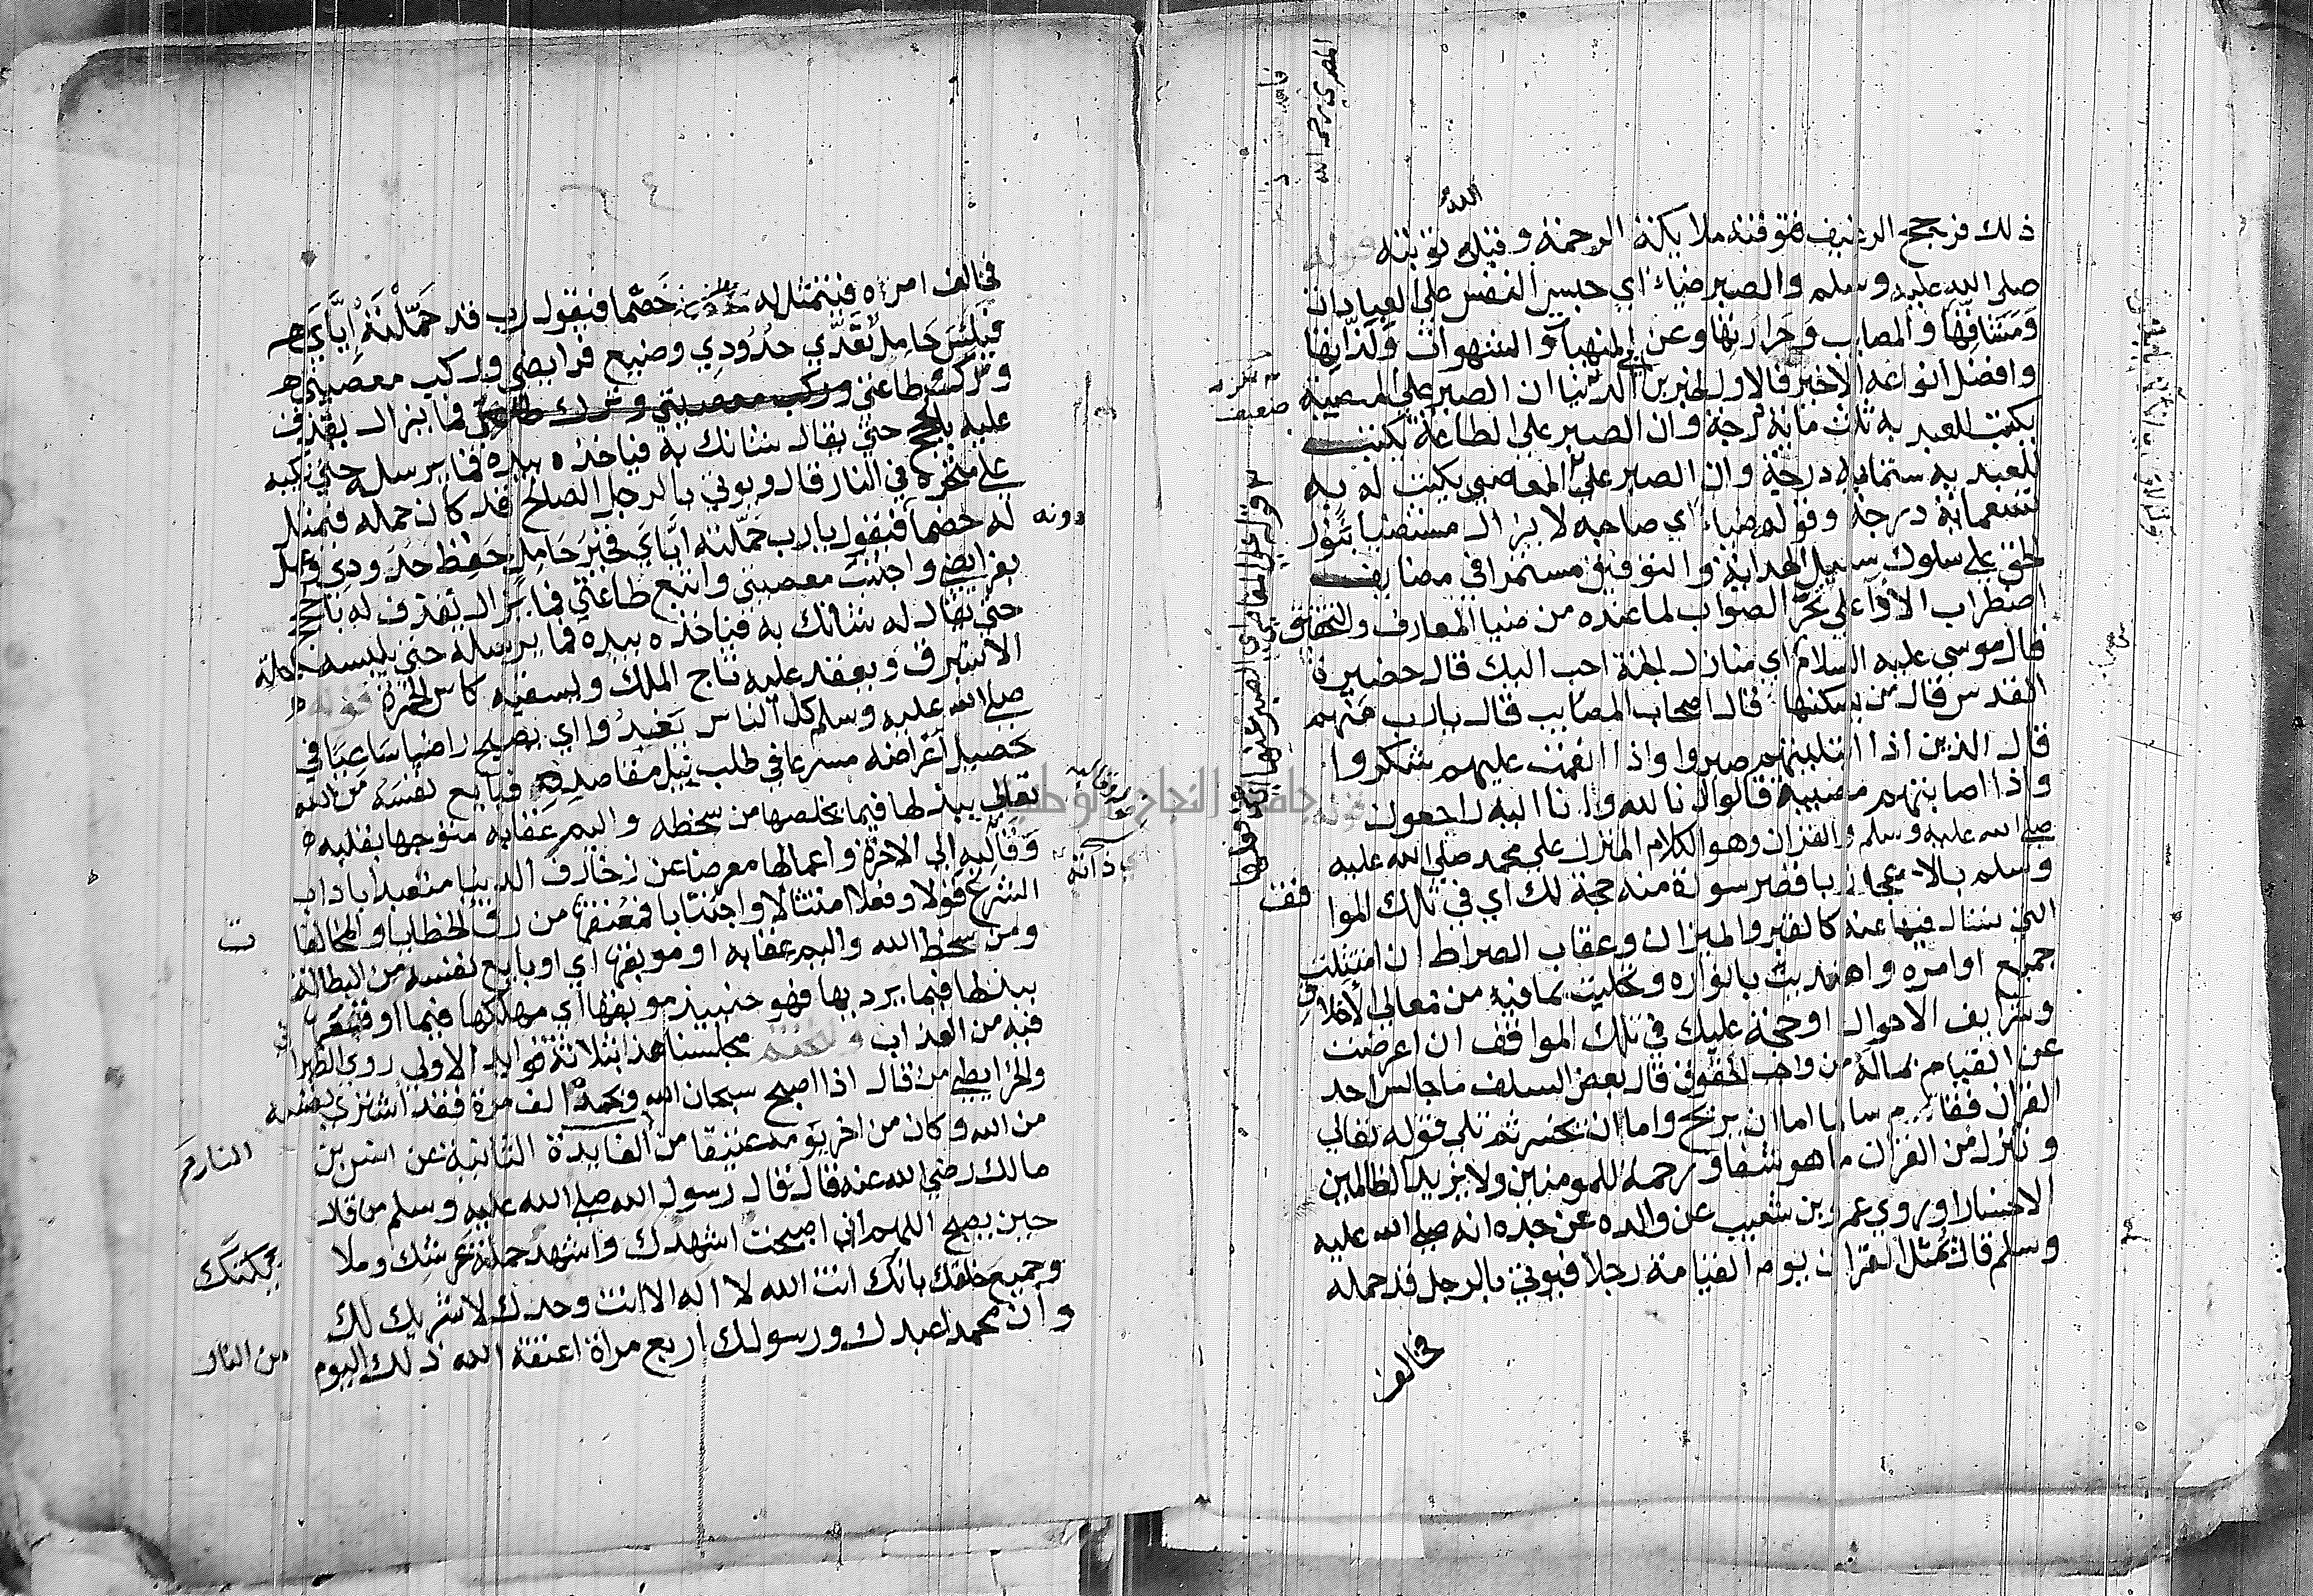 ذلك فرجح الرغيف فتوفته ملايكة الرحمة وقبل الله توبته قوله
صلى الله عليه وسلم والصبر ضياء اي حبس النفس على العبادات
ومشاقها والمصايب وحرارتها وعن المنهيات والشهوات ولذاتها
وافضل انواعه الاخير فالاول لخبر ابن ابي الدنيا ان الصبر على المصيبة
يكتب للعبد به ثلث ماية درجة وان الصبر على الطاعة يكتب
للعبد به ستماية درجة وان الصبر على المعاصي يكتب له به
تسعماية درجة وقوله ضياء اي صاحبه لا يزال مستضيا بنور
الحق على سلوك سبيل الهداية والتوفيق مستمرا في مضايف
اضطراب الاراء على تحري الصواب لما عنده من ضيا المعارف والتحقيق
قال موسى عليه السلام اي منازل الجنة احب اليك قال حضيرة
القدس قال من يسكنها قال اصحاب المصايب قال يارب من هم
قال الذين اذا ابتليتهم صبروا واذا انعمت عليهم شكروا
واذا اصابتهم مصيبة قالوا انا لله وانا اليه راجعون قوله
صلى الله عليه وسلم والقران وهو الكلام المنزل على محمد صلى الله عليه
وسلم بالاعجاز باقصر سورة منه حجة لك اي في تلك الموا قف
التي تسال فيها عنه كالقبر والميزان وعقاب الصراط ان امتثلت
جميع اوامره واهتديت بانواره وتحليت بما فيه من معالي الاخلاق
وشرايف الاحوال او حجة عليك في تلك المواقف ان اعرضت
عن القيام بماله من واجب الحقوق قال بعض السلف ما جالس احد
القران فقام سالما اما ان يربح واما ان يخسر ثم تلى قوله تعالى
وننزل من القران ما هو شفا ورحمة للمومنين ولا يزيد الظالمين
الا خسارا وروي عمرو بن شعيب عن والده عن جده انه صلى الله عليه
وسلم قال يمثل القران يوم القيامة رجلا فيوتى بالرجل قد حمله
فخالف
فخالف امره فيتمثل له خصما فيقول رب قد حملته اياي
فبئس حامل تعدي حدودي وضيع فرايضي وركب معصيتي
وترك طاعتي وركب معصيتي وترك طاعتي فما يزال يقذف
عليه بالحجج حتى يقال شانك به فياخذه بيده فما يرسله حتى يكبه
على منخره في النار قال ويوتى بالرجل الصالح قد كان حمله فيمثل
له خصما دونه فيقول يارب حملته اياي فخير حامل حفظ حدودي وعمل
بفرايضي واجتنب معصيتي واتبع طاعتي فما يزال يقذف له بالحجج
حتى يقال له شانك به فياخذه بيده فما يرسله حتى يلبسه حلة
الاستبرق ويعقد عليه تاج الملك ويسقيه كاس الخمرة قوله
صلى الله عليه وسلم كل الناس يغدوا اي يصبح راضيا ساعيا في
تحصيل اغراضه مسرعا في طلب نيل مقاصده فبايع نفسه من الله
تعالى ببذلها فيما يخلصها من سخطه واليم عقابه متوجها بقلبه
وقالبه الى الاخرة واعمالها معرضا عن زخارف الدنيا متعبدا باداب
الشرع قولا وفعلا امتثالا واجتنابا فمعتقها من رق الخطايا والمخالفا ت
ومن سخط الله واليم عقابه او موبقها اي او بايع نفسه من البطالة
ببذلها فيما يرديها فهو حينيذ موبقها اي مهلكها فيما اوقعتها
فيه من العذاب ولنختم مجلسنا هذا بثلاثة فوايد الاولى روى الطبراني
والخرايطي من قال اذا اصبح سبحان الله وبحمده الف مرة فقد اشترى نفسه
من الله وكان من اخر يومه عتيقا من النار الفايدة الثانية عن انس بن
مالك رضي الله عنه قال قال رسول الله صلى الله عليه وسلم من قال
حين يصبح اللهم اني اصبحت اشهدك واشهد حملة عرشك وملا يكتك
وجميع خلقك بانك انت الله لا اله الا انت وحدك لا شريك لك
وان محمدا عبدك ورسولك اربع مراة اعتقه الله ذلك اليوم من النار
جامعة النجاح الوطنية